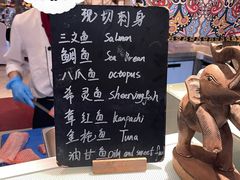 现切刺身
三文鱼 Salmon
鲷鱼 Sea Bream
八爪鱼 octopus
希灵鱼 sheering fish
章红鱼 kanpachi
金枪鱼 Tuna
油甘鱼 and sweet